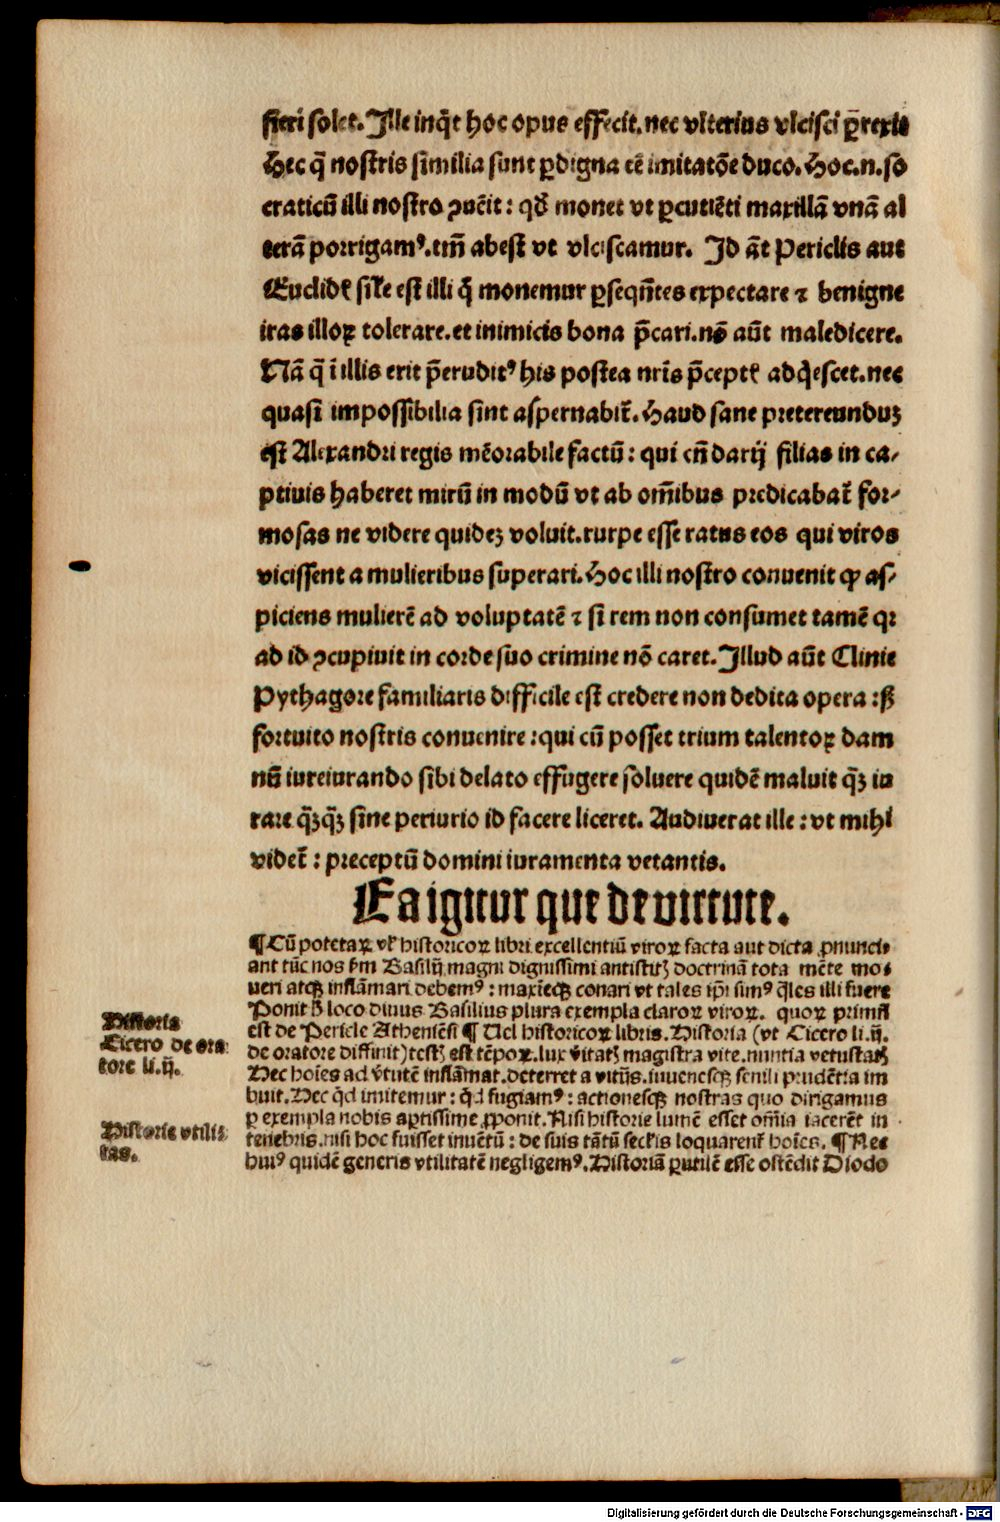 fieri solet. Ille inq̃t hoc opus effecit. nec vlterius vlcisci ꝑrexit
Hec q̃ nostris similia sunt ꝑdigna eẽ imitatõe duco. Hoc .n. so
craticũ illi nostro ꝯuẽit: qđ monet vt ꝑcutiẽti maxillã vnã al
terã porrigamꝰ. tm̃ abest vt vlciscamur. Id aũt Periclis aut
Euclidꝭ sil'e est illi q̃ monemur ꝑseqũtes expectare ⁊ benigne
iras illoꝝ tolerare. et inimicis bona p̃cari. nõ aũt maledicere.
Nã q̃ ĩ illis erit p̃eruditꝰ his postea nr̃is p̃ceptꝭ adq̃escet. nec
quasi impossibilia sint aspernabit̃. Haud sane pretereunduꝫ
est Alexandri regis mẽorabile factũ: qui cũ darij filias in ca⸗
ptiuis haberet mirũ in modũ vt ab om̃ibus predicabat̃ for⸗
mosas ne videre quideꝫ voluit. turpe esse ratus eos qui viros
vicissent a mulieribus superari. Hoc illi nostro conuenit ꝙ as⸗
piciens mulierẽ ad voluptatẽ ⁊ si rem non consumet tamẽ qꝛ
ad id ꝯcupiuit in corde suo crimine nõ caret. Illud aũt Clinie
Pythagore familiaris difficile est credere non dedita opera: ß
fortuito nostris conuenire: qui cũ posset trium talentoꝝ dam
nũ iureiurando sibi delato effugere soluere quidẽ maluit q̃ꝫ iu
rare q̃ꝫq̃ꝫ sine periurio id facere liceret. Audiuerat ille: vt mihi
videt̃: preceptũ domini iuramenta vetantis.
Ea igitur que de virtute.
¶ Cũ poetaꝝ vl' historicoꝝ libri excellentiũ viroꝝ facta aut dicta ꝓnunci⸗
ant tũc nos fm̃ Basilij magni dignissimi antistitꝭ doctrinã tota mẽte mo⸗
ueri atqꝫ inflãmari debemꝰ: maxieqꝫ conari vt tales ip̃i simꝰ q̃les illi fuere
Ponit ħ loco diuus Basilius plura exempla claroꝝ viroꝝ. quoꝝ primũ
est de Pericle Atheniẽsi ¶ Uel historicoꝝ libris. Historia (vt Cicero li. ij.
de oratore diffinit) testꝭ est tẽpoꝝ. lux v̓itatꝭ magistra vite. nuntia vetustatꝭ
Hec hoĩes ad v̓tutẽ inflãmat. deterret a vitijs. iuuenesqꝫ senili prudẽtia im
buit. Hec q̃d imitemur: q̃d fugiamꝰ: actionesqꝫ nostras quo dirigamus
ꝑ exempla nobis aptissime ꝓponit. Nisi historie lumẽ esset om̃ia iacerẽt in
tenebris. nisi hoc fuisset inuẽtũ: de suis tãtũ seclis loquarent̃ hoĩes. ¶ Nec
huiꝰ quidẽ generis vtilitatẽ negligemꝰ. Historiã ꝑutilẽ esse ostẽdit Diodo
Historia
Cicero de ora
tore li. ij.
Historie vtili⸗
tas.
Digitalisierung gefördert durch die Deutsche Forschungsgemeinschaft - DFG